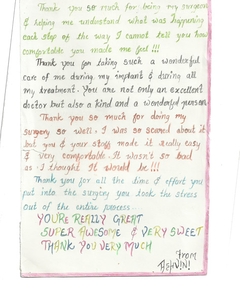 Thank you so much for being my surgeon
& helping me understand what was happening
each step of the way I cannot tell you how
comfortable you made me feel!!!
Thank you for taking such a wonderful
care of me during my implant & during all
my treatment. You are not only an excellent
doctor but also a kind and a wonderful person
Thank you so much for doing my
surgery so well. I was so scared about it
but you & your staff made it really easy
& very comfortable. It wasn't so bad
as I thought It should be!!!
Thank you for all the time & effort you
put into the surgery you took the stress
out of the entire process...
YOU'RE REALLY GREAT
SUPER AWESOME & VERY SWEET
THANK YOU VERY MUCH
From